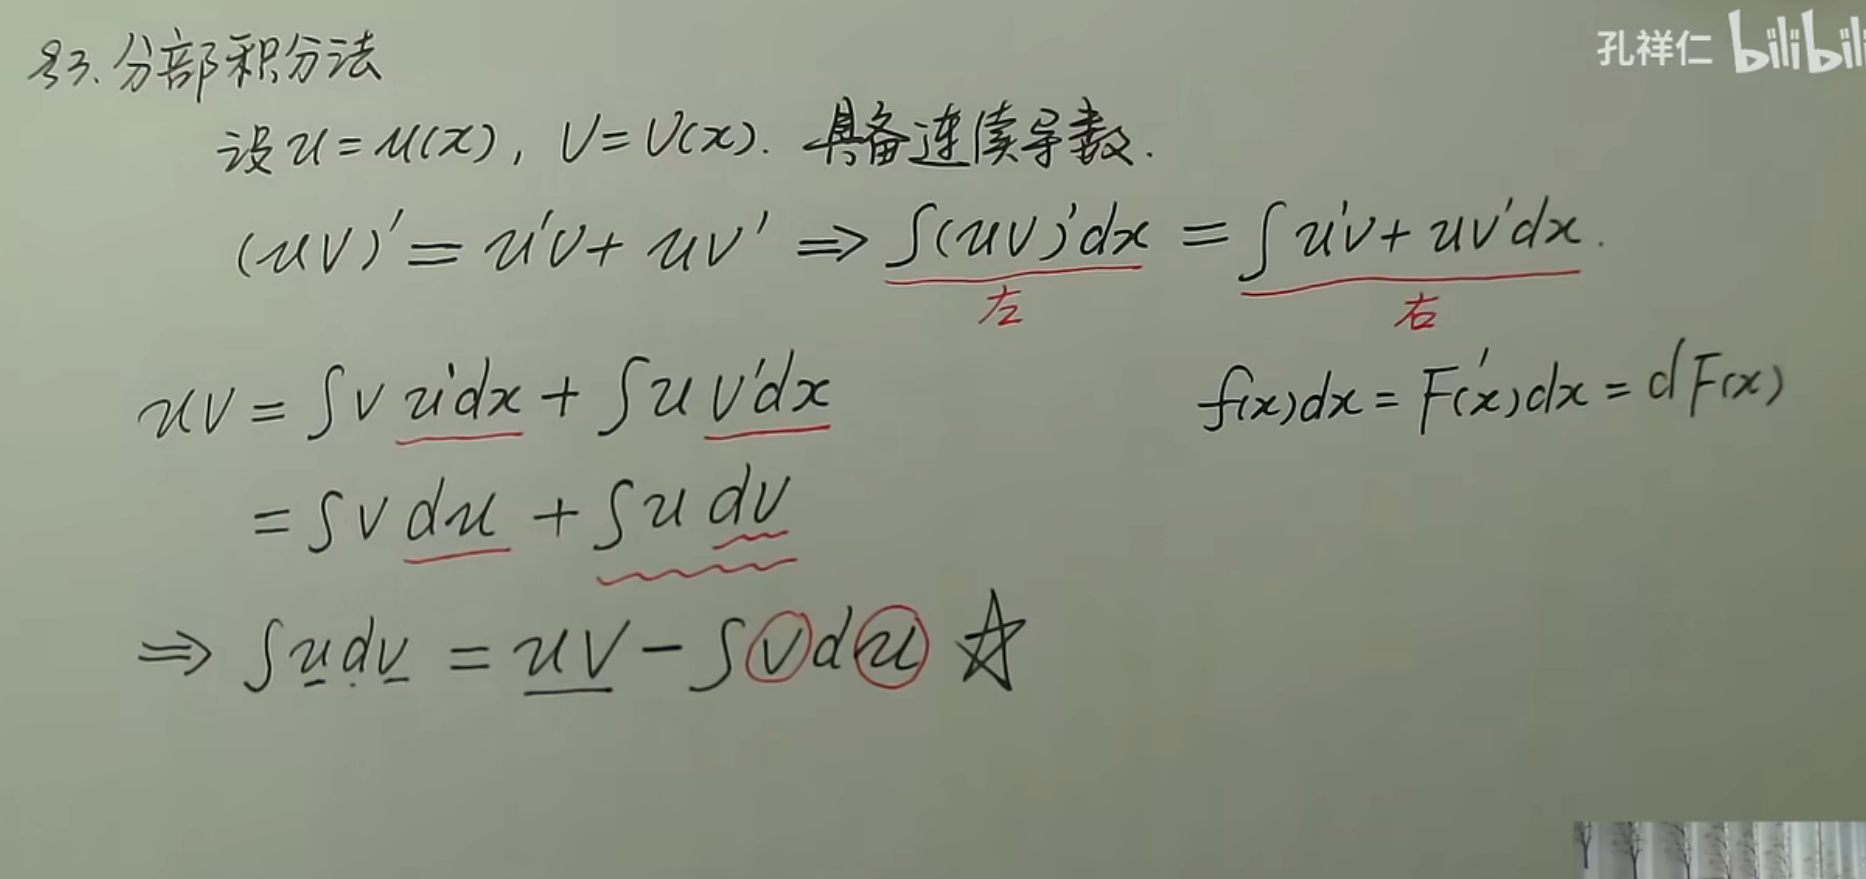 §3.分部积分法
孔祥仁 bilibili
设u=u(x), v=v(x). 具备连续导数.
(uv)'=u'v+uv' ⇒ ∫(uv)'dx = ∫u'v+uv'dx.
左 右
uv=∫v u'dx+∫u v'dx
f(x)dx=F'(x)dx=dF(x)
=∫v du+∫u dv
⇒ ∫udv = uv-∫vdu ☆